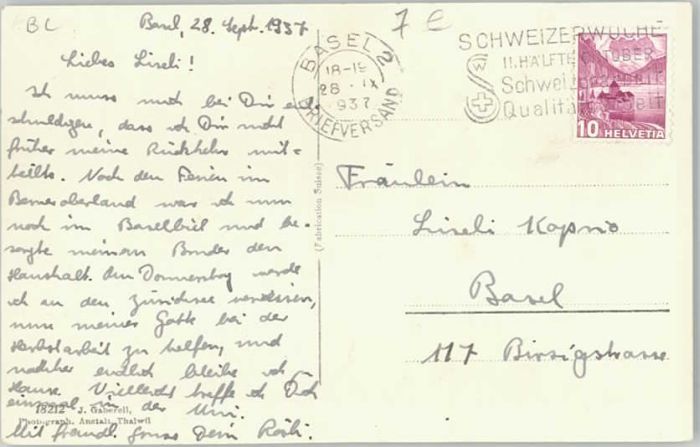 BL
7 €
Basel, 28. Sept. 1937
Liebes Liseli!
Ich muss mich bei Dir ent-
schuldigen, dass ich Dir nicht
früher meine Rückkehr mit-
teilte. Nach den Ferien im
Berneroberland war ich nun
noch im Baselbiet und be-
sorgte meinem Bruder den
Haushalt. Am Donnerstag werde
ich an den Zürichsee verreisen,
um meiner Gotte bei der
Herbstarbeit zu helfen, und
nachher endlich bleibe ich
Hause. Vielleicht treffe ich Dich
einmal in der Uni.
Mit freundl. Gruss Dein Röbi.
18212 J. Gaberell,
Photograph. Anstalt Thalwil
(Fabrication Suisse)
BASEL 2
18-19
28. IX
1937
BRIEFVERSAND
SCHWEIZERWOCHE
II. HÄLFTE OKTOBER
Schweizer
Qualität
10 HELVETIA
Fräulein
Liseli Kaprio
Basel
117 Birsigstrasse